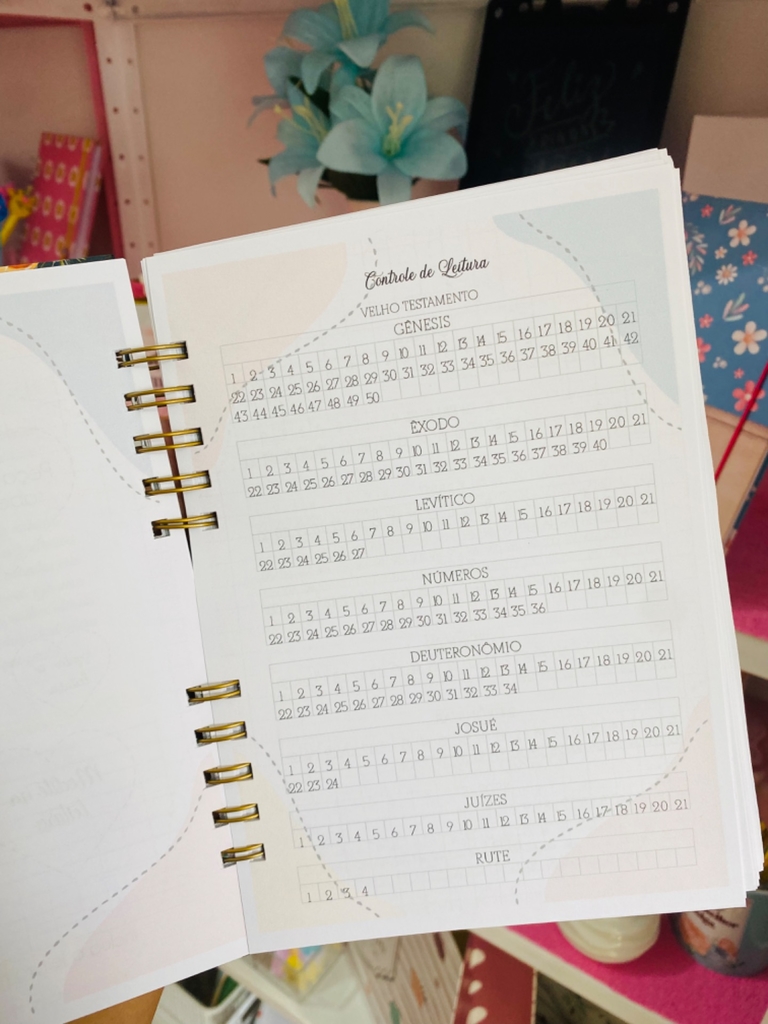 Feliz
Controle de Leitura
VELHO TESTAMENTO
GÊNESIS
1 2 3 4 5 6 7 8 9 10 11 12 13 14 15 16 17 18 19 20 21
22 23 24 25 26 27 28 29 30 31 32 33 34 35 36 37 38 39 40 41 42
43 44 45 46 47 48 49 50
ÊXODO
1 2 3 4 5 6 7 8 9 10 11 12 13 14 15 16 17 18 19 20 21
22 23 24 25 26 27 28 29 30 31 32 33 34 35 36 37 38 39 40
LEVÍTICO
1 2 3 4 5 6 7 8 9 10 11 12 13 14 15 16 17 18 19 20 21
22 23 24 25 26 27
NÚMEROS
1 2 3 4 5 6 7 8 9 10 11 12 13 14 15 16 17 18 19 20 21
22 23 24 25 26 27 28 29 30 31 32 33 34 35 36
DEUTERONÔMIO
1 2 3 4 5 6 7 8 9 10 11 12 13 14 15 16 17 18 19 20 21
22 23 24 25 26 27 28 29 30 31 32 33 34
JOSUÉ
1 2 3 4 5 6 7 8 9 10 11 12 13 14 15 16 17 18 19 20 21
22 23 24
JUÍZES
1 2 3 4 5 6 7 8 9 10 11 12 13 14 15 16 17 18 19 20 21
RUTE
1 2 3 4